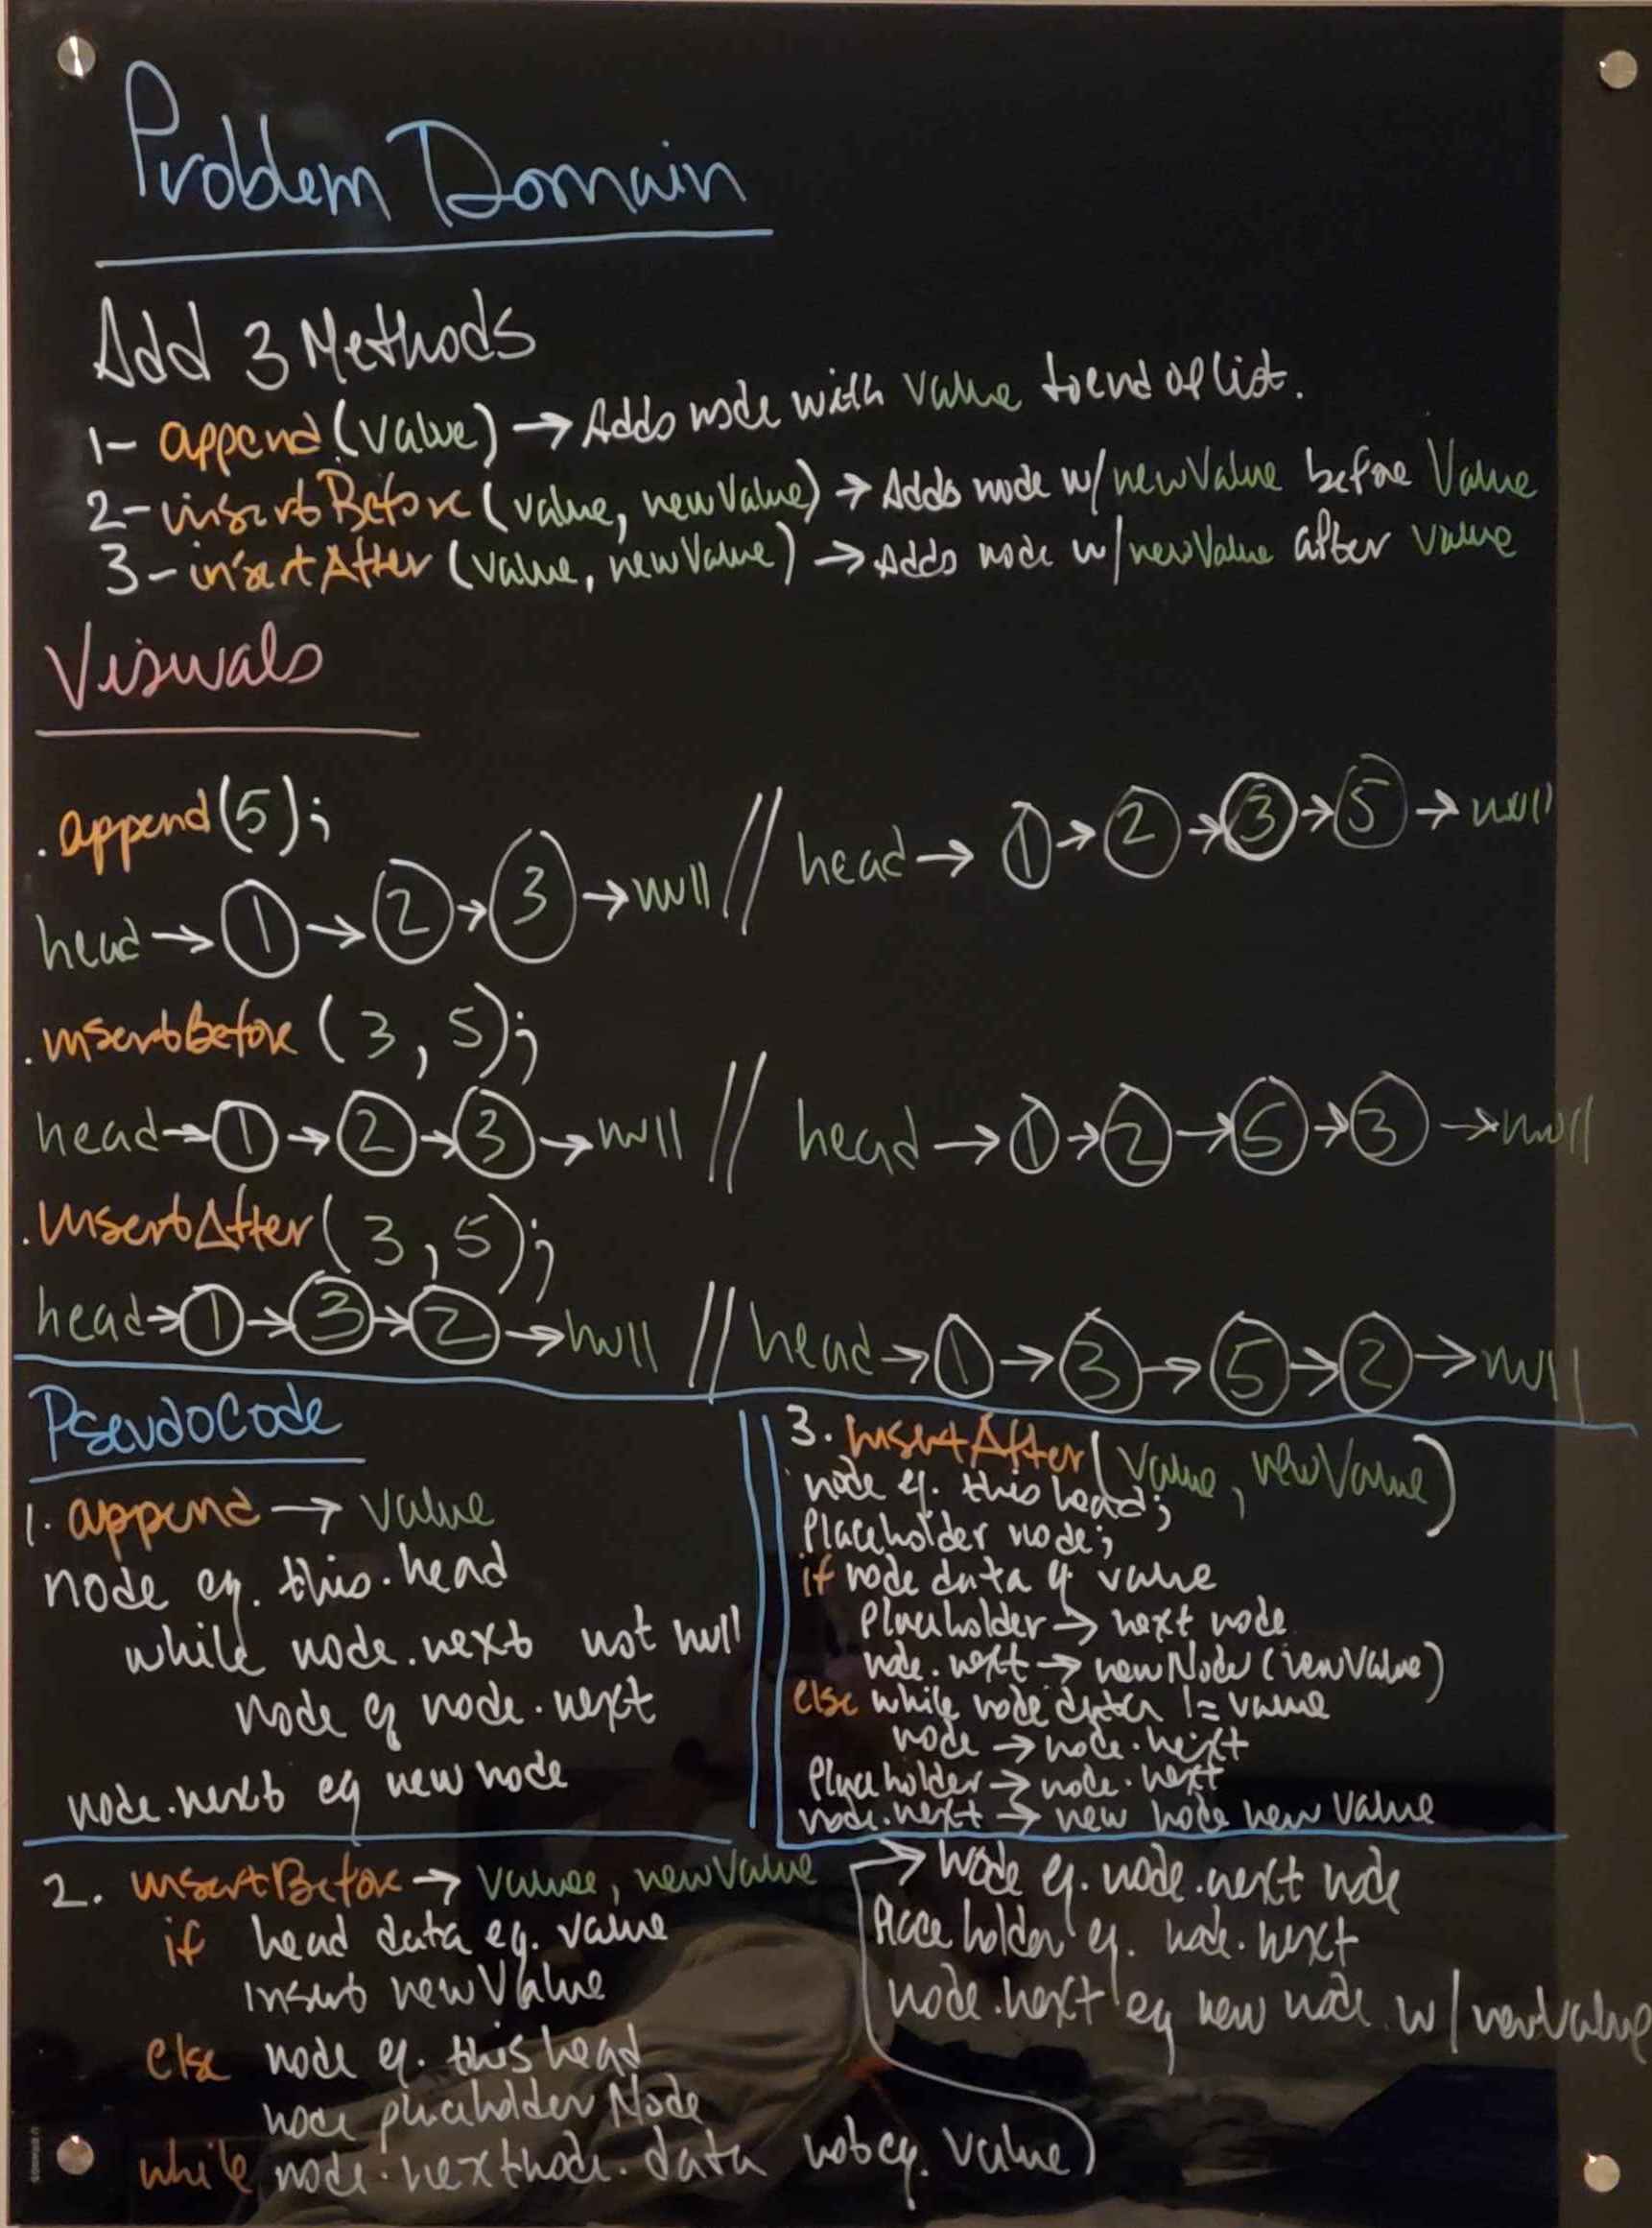 Problem Domain
Add 3 Methods
1- append(value) → Adds node with value to end of list.
2- insertBefore(value, newValue) → Adds node w/ newValue before Value
3- insertAfter (value, newValue) → Adds node w/ newValue after value
Visuals
.append(5);
head → 1 → 2 → 3 → null // head → 1 → 2 → 3 → 5 → null
.insertBefore (3, 5);
head → 1 → 2 → 3 → null // head → 1 → 2 → 5 → 3 → null
.insertAfter(3, 5);
head → 1 → 3 → 2 → null // head → 1 → 3 → 5 → 2 → null
PseudoCode
1. append → value
node eq. this.head
while node.next not null
node eq node.next
node.next eq new node
3. insertAfter(value, newValue)
node eq. this head;
Placeholder node;
if node data eq. value
Placeholder → next node
node.next → newNode(newValue)
else while node data != value
node → node.next
Placeholder → node.next
node.next → new node new Value
2. insertBefore → value, newValue
if head data eq. value
insert newValue
else node eq. this head
node placeholder Node
while node.nextnode.data not eq. value)
→ Node eq. node.next node
Placeholder eq. node.next
node.next eq new node w/ newValue